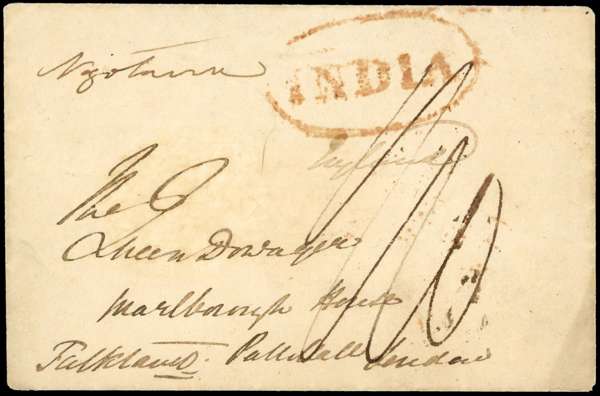 INDIA
England
The
Queen Dowager
Marlborough House
Falkland. Pall Mall London